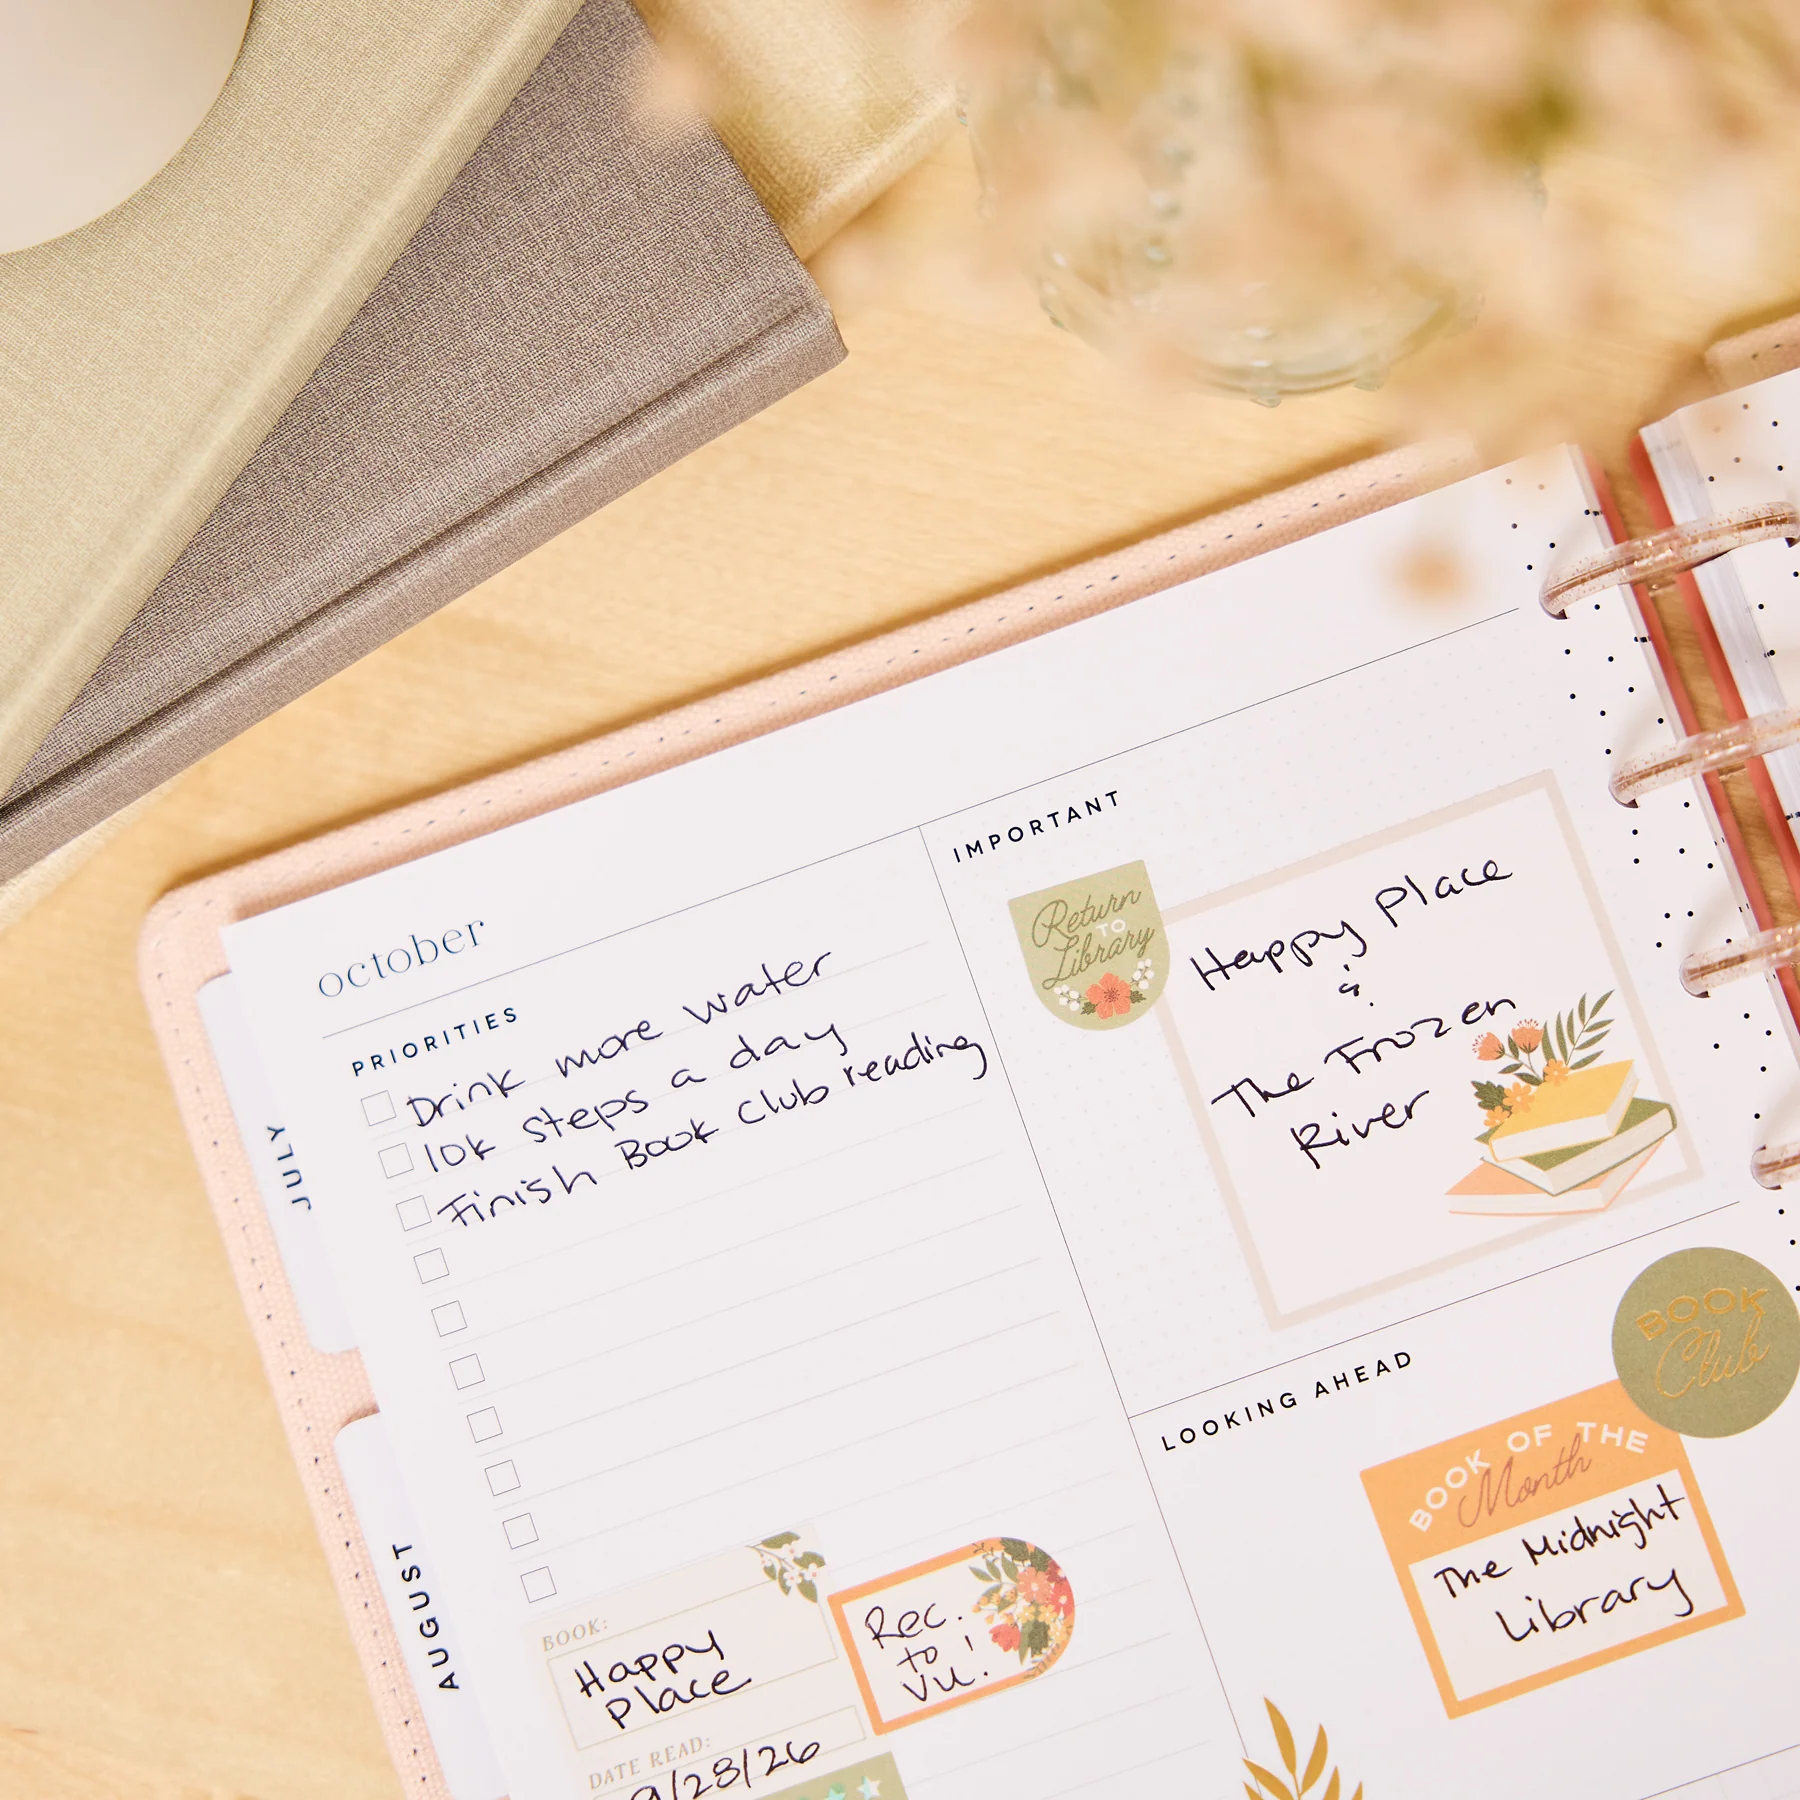 october
PRIORITIES
Drink more water
10k steps a day
Finish Book Club reading
JULY
AUGUST
IMPORTANT
Return
TO
Library
Happy Place
&
The Frozen
River
LOOKING AHEAD
BOOK
Club
BOOK OF THE
Month
The Midnight
Library
BOOK:
Happy
Place
Rec.
to
VU!
DATE READ:
9/28/26